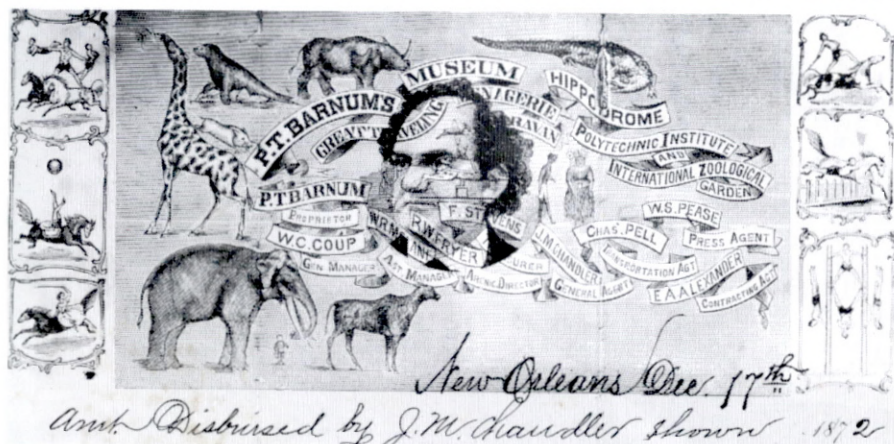 P.T. BARNUM'S
MUSEUM
HIPPODROME
GREAT TRAVELING
CARAVAN
POLYTECHNIC INSTITUTE
AND
INTERNATIONAL ZOOLOGICAL
GARDEN
P.T BARNUM
PROPRIETOR
W.C. COUP
GEN MANAGER
AST. MANAGER
R.W. FRYER
F. STEVENS
J.M. CHANDLER
GENERAL AGENT
CHAS. PELL
TRANSPORTATION AGT
W.S. PEASE
PRESS AGENT
E A A LEXANDER
CONTRACTING AGT
New Orleans Dec. 17th
Amt. Disbursed by J.M. Chandler shown 1872